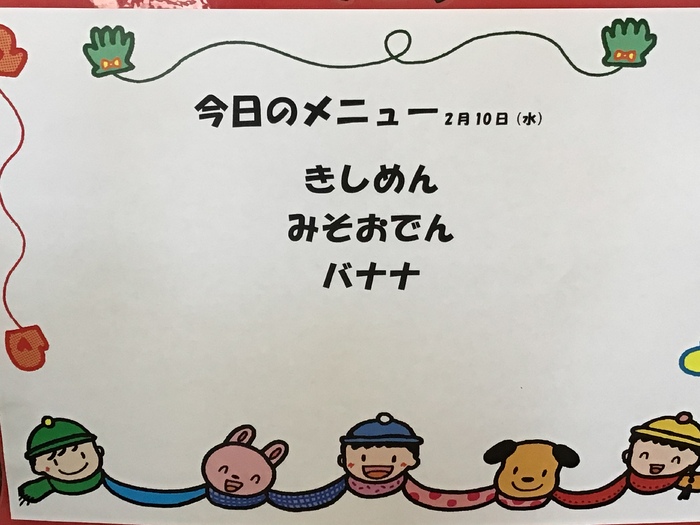 今日のメニュー 2月10日（水）
きしめん
みそおでん
バナナ